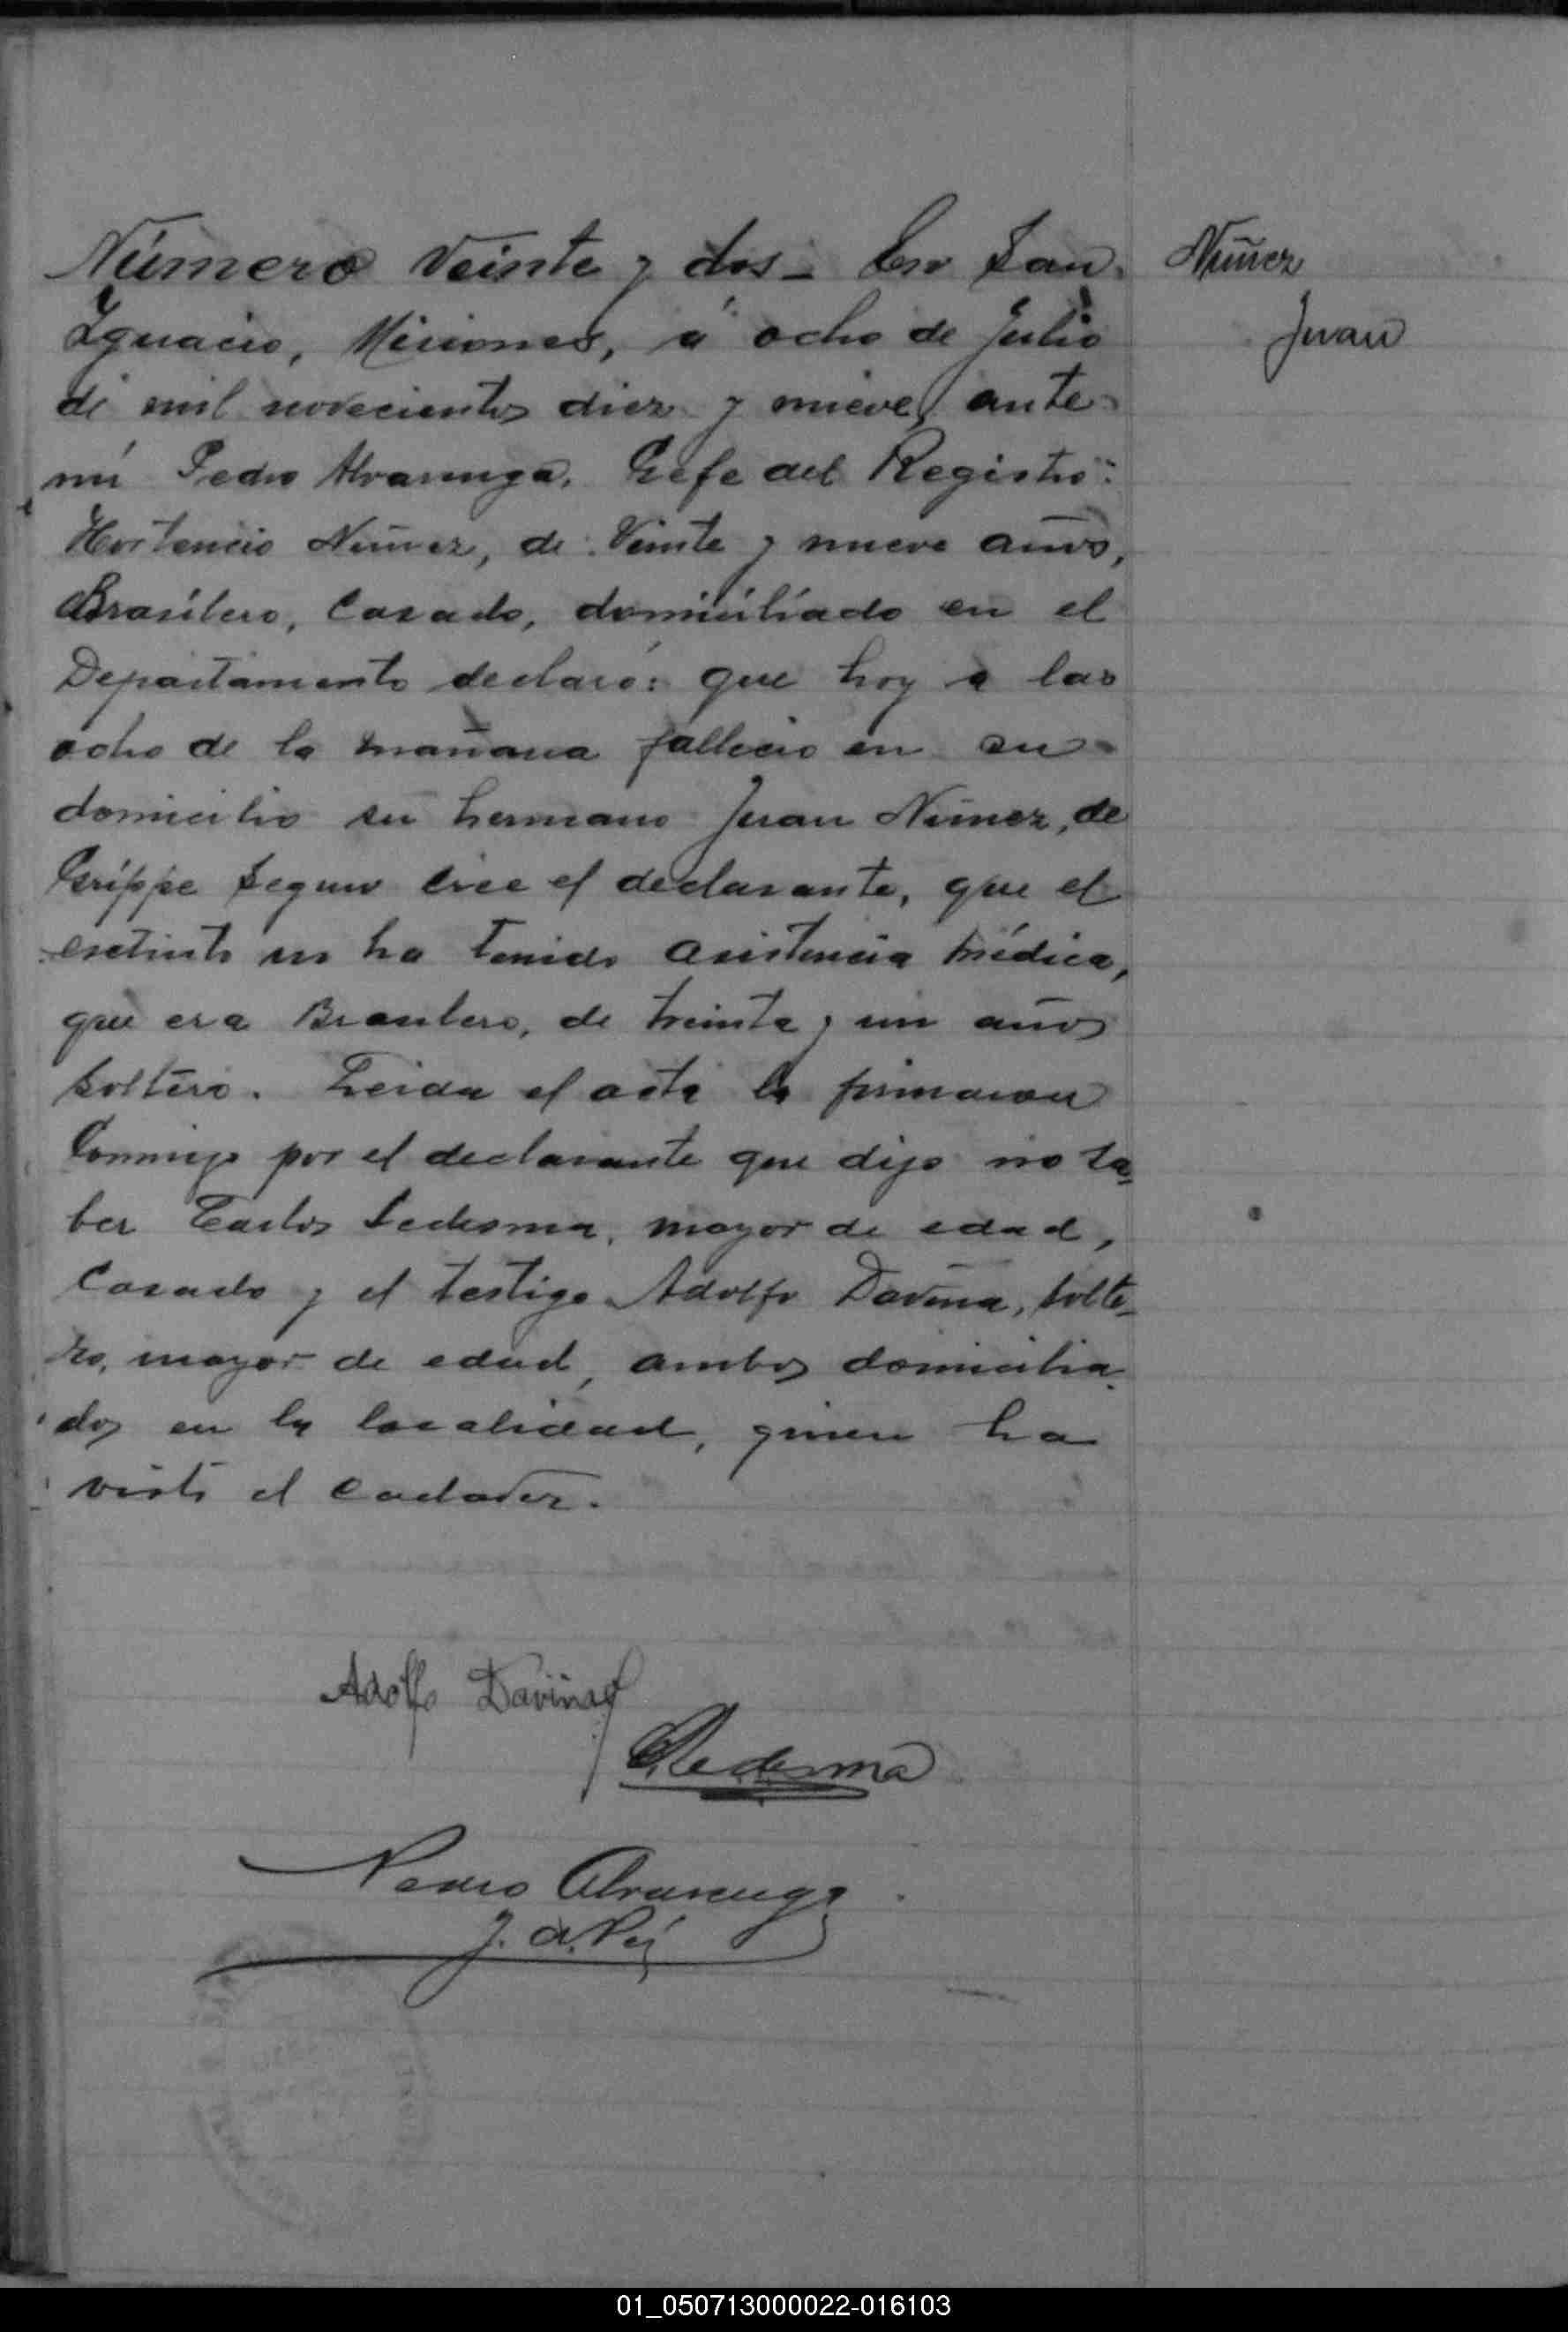 Número Veinte y dos - En San
Ignacio, Misiones, á ocho de Julio
de mil novecientos diez y nueve, ante
mí Pedro Alvarenga, Gefe del Registro:
Hortencio Nuñez, de Veinte y nueve años,
Brasilero, Casado, domiciliado en el
Departamento declaró: que hoy a las
ocho de la mañana fallecio en su
domicilio su hermano Juan Nuñez, de
Grippe segun cree el declarante, que el
esctinto no ha tenido asistencia médica,
que era Brasilero, de treinta y un años
soltero. Leida el acta la firmaron
Conmigo por el declarante que dijo no sa-
ber Carlos Ledesma, mayor de edad,
Casado y el testigo Adolfo Daviña, solte-
ro, mayor de edad, ambos domicilia-
dos en la localidad, quien ha
visto el cadaver.
Nuñez
Juan
Adolfo Daviña
C. Ledesma
Pedro Alvarenga
J. d. Rej
01_050713000022-016103